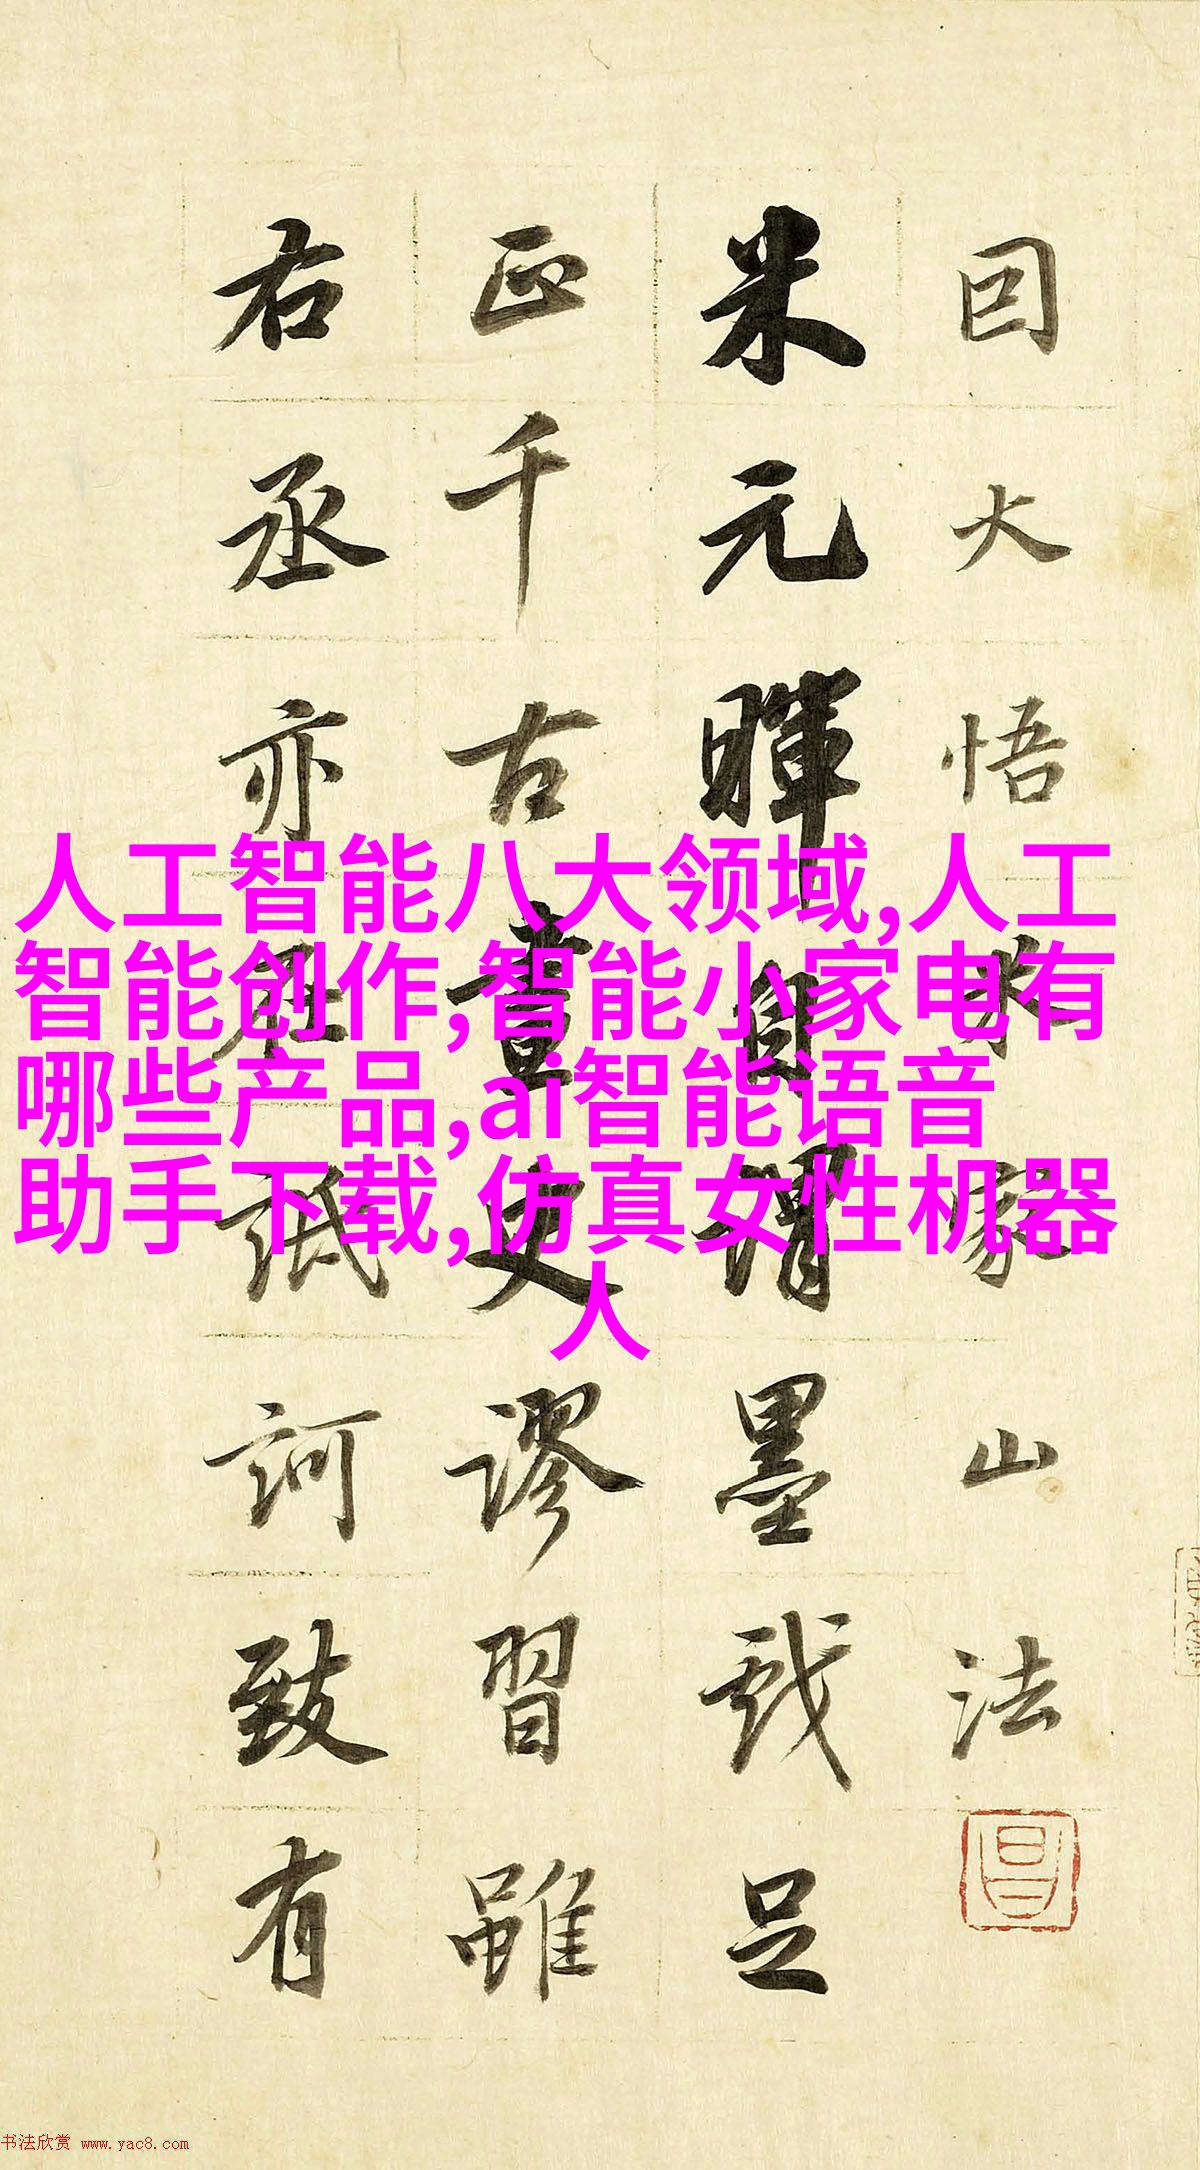 因大悟米家山法
米元暉自謂墨戲足
正千古畫史謬習雖
右丞亦在詆訶致有
人工智能八大领域,人工
智能创作,智能小家电有
哪些产品,ai智能语音
助手下载,仿真女性机器
人
书法欣赏 www.yac8.com